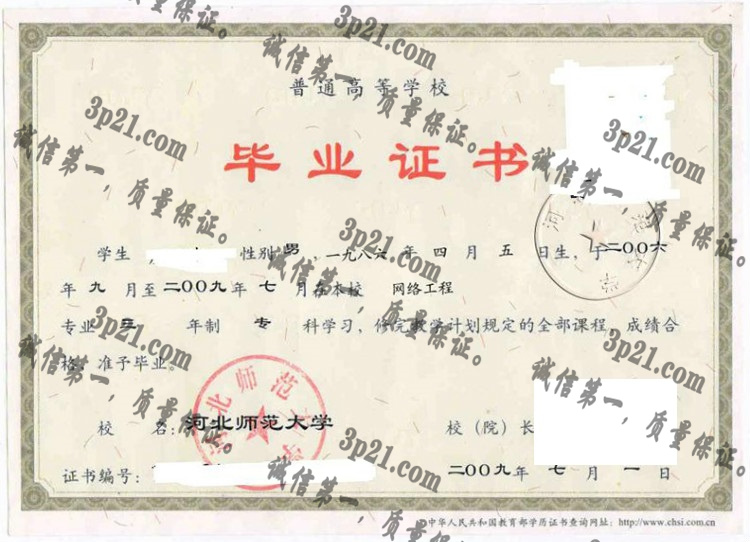 普通高等学校
毕业证书
学生 性别 男 ，一九八六年 四 月 五 日生，于二〇〇六
年 九 月至二〇〇九年 七 月在本校 网络工程
专业 三 年制 专 科学习，修完教学计划规定的全部课程，成绩合
格，准予毕业。
河北师范大学
校 名：河北师范大学 校（院）长
证书编号： 二〇〇九年 七 月 一 日
中华人民共和国教育部学历证书查询网址：http://www.chsi.com.cn
3p21.com
诚信第一，质量保证。
3p21.com
诚信第一，质量保证。
3p21.com
诚信第一，质量保证。
3p21.com
诚信第一，质量保证。
3p21.com
诚信第一，质量保证。
3p21.com
诚信第一，质量保证。
3p21.com
诚信第一，质量保证。